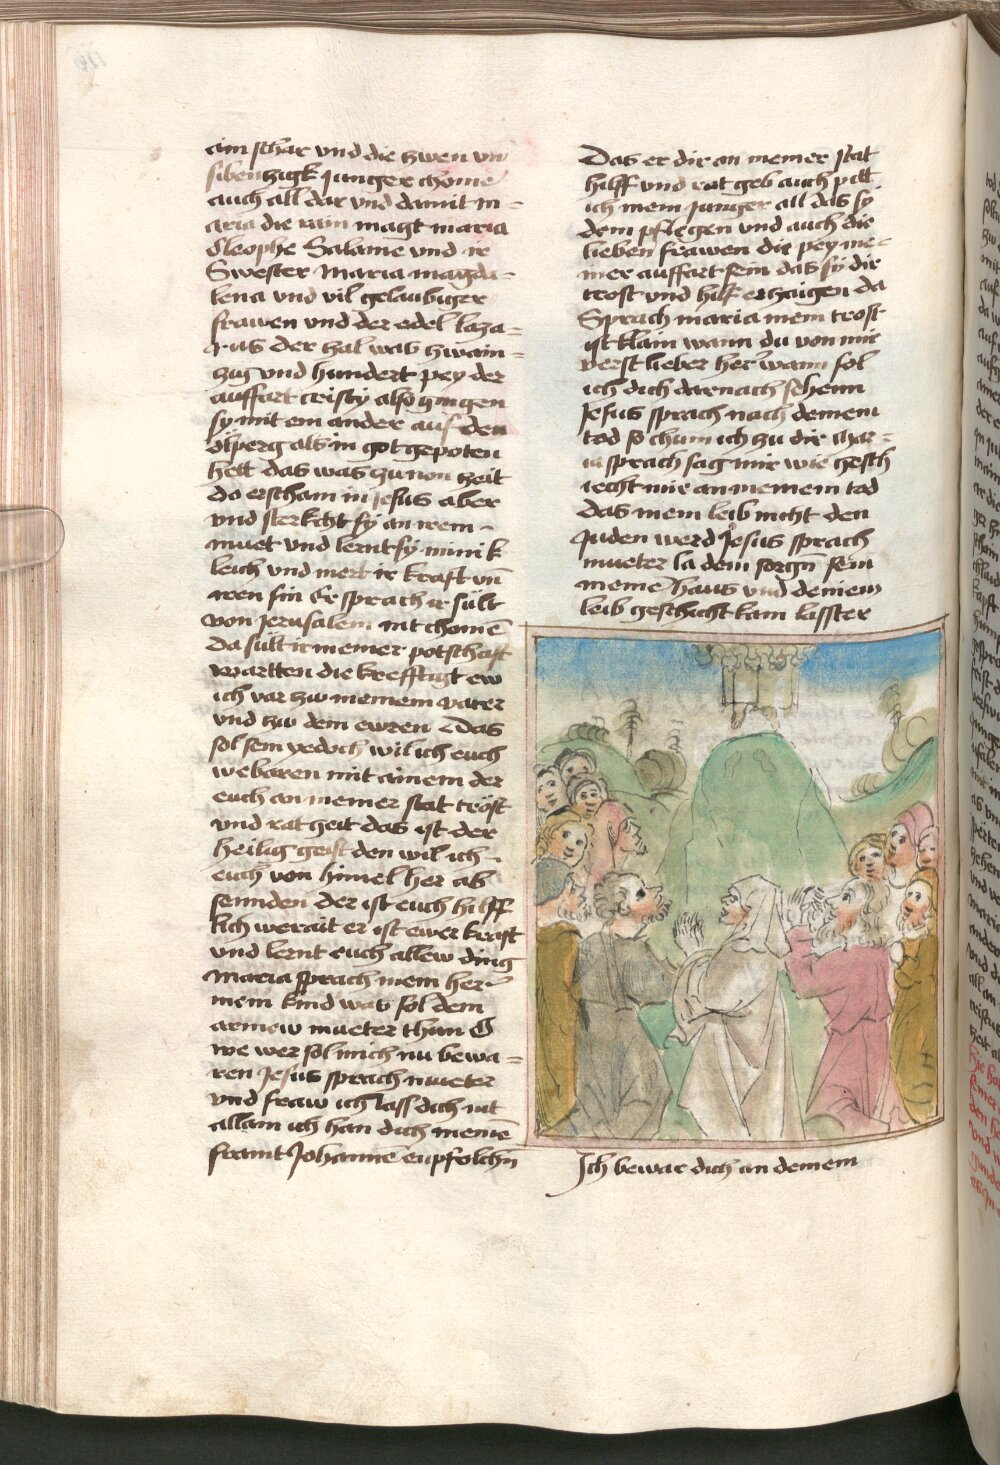 ain schar vnd die zwen vn̄
sibenzigk junger chome
auch all dar vnd damit m=
aria die rain magt maria
Cleophe Salame vnd ir
Swester Maria magda=
lena vnd vil gelaubiger
frawen vnd der edel laza=
rus der zal was zwain=
zug vnd hundert pey der
auffart cristy also gingen
sy mit ein ander auf den
ölperg als in got gepoten
hett das was zu non zeit
do erscham in jesus aber
vnd sterkcht sy an irem
muet vnd lernt sy minik
leich vnd mert ir kraft vn̄
iren sin Er sprach ir sült
von Jerusalem nit chomē
Da sült ir meiner potschaft
wartten die krefftigt ew
ich var zw meinem vater
vnd zw dem ewren Das
sol sein yedoch wil ich euch
webaren mit ainem der
euch an meiner stat tröst
vnd rat geit das ist der
heilig geist den wil ich
euch von himel her ab
sennden der ist euch hilff
lich werait er ist ewer kraft
vnd lernt euch allew ding
Maria sprach mein her
mein kind was sol dem
armew mueter thun O
we wer sol mich nu bewa=
ren Jesus sprach mueter
vnd fraw ich lass dich nit
allain ich han dich meinē
frawnt Johanne enpfolchn
Das er dir an meiner stat
hilff vnd rat geb auch pitt
ich mein junger all das sy
dem pflegen vnd auch die
lieben frawen die pey me=
iner auffart sein das sy dir
trost vnd hilf erzaigen da
Sprach maria mein trost
ist klain wann du von mir
verst lieber her wann sol
ich dich darnach sehenn
Jesus sprach nach deinem
tod so chum ich zu dir Mar=
ia sprach sag mir wie gesch
iecht mir an meinem tod
Das mein leib nicht den
Juden werd Jesus sprach
mueter la dein sorgn̄ sein
meinē haus vnd deinem
leib geschicht kain lasster
Ich bewar dich an deinem